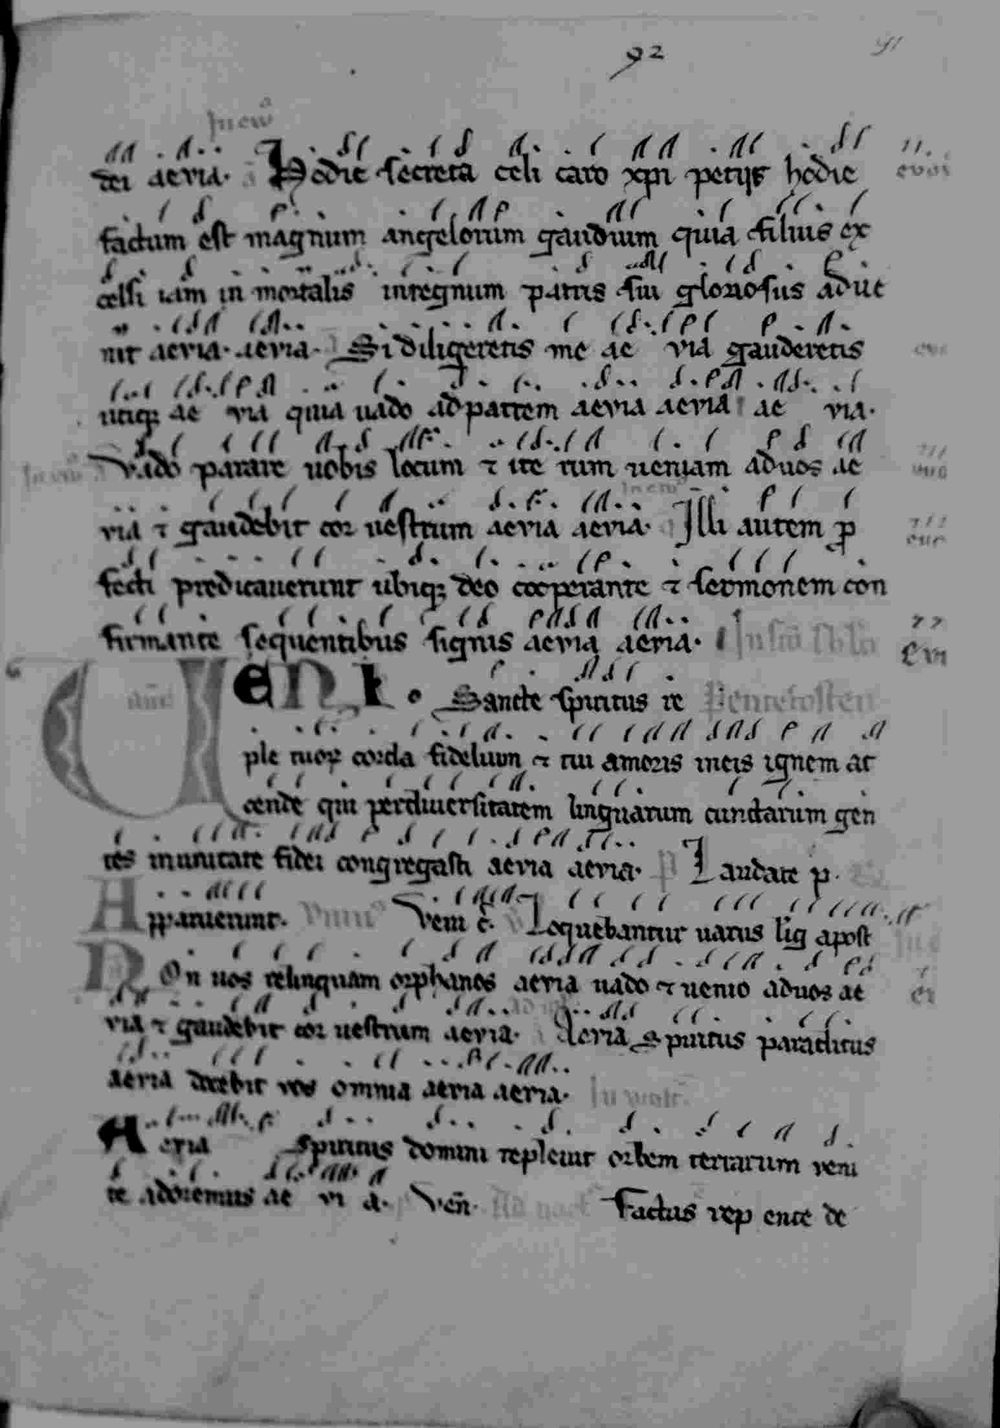 92 91
In ev
dei aevia. a Hodie secreta celi caro xpi petiit hodie
factum est magnum angelorum gaudium quia filius ex
celsi iam in mortalis inregnum patris sui gloriosus adue
nit aevia. aevia. Si diligeretis me ae via gauderetis
utiq; ae via quia uado ad patrem aevia aevia ae via.
Vado parare uobis locum ⁊ ite rum ueniam aduos ae
via ⁊ gaudebit cor uestrum aevia aevia. Illi autem p
fecti predicauerunt ubiq; deo cooperante ⁊ sermonem con
firmante sequentibus signis aevia aevia.
VENI. Sancte spiritus re Pentecosten
ple tuoꝝ corda fidelium ⁊ tui amoris ineis ignem ac
cende qui perdiuersitatem linguarum cunctarum gen
tes inunitate fidei congregasti aevia aevia. P Laudate p.
Apparuerunt. Veni c. Loquebantur uarus lig apost
Non uos relinquam orphanos aevia uado ⁊ uenio aduos ae
via ⁊ gaudebit cor uestrum aevia. Aevia Spiritus paraclitus
aevia docebit vos omnia aevia aevia.
Aevia Spiritus domini repleuit orbem terrarum veni
te adoremus ae vi a. Veñ. Factus rep ente de